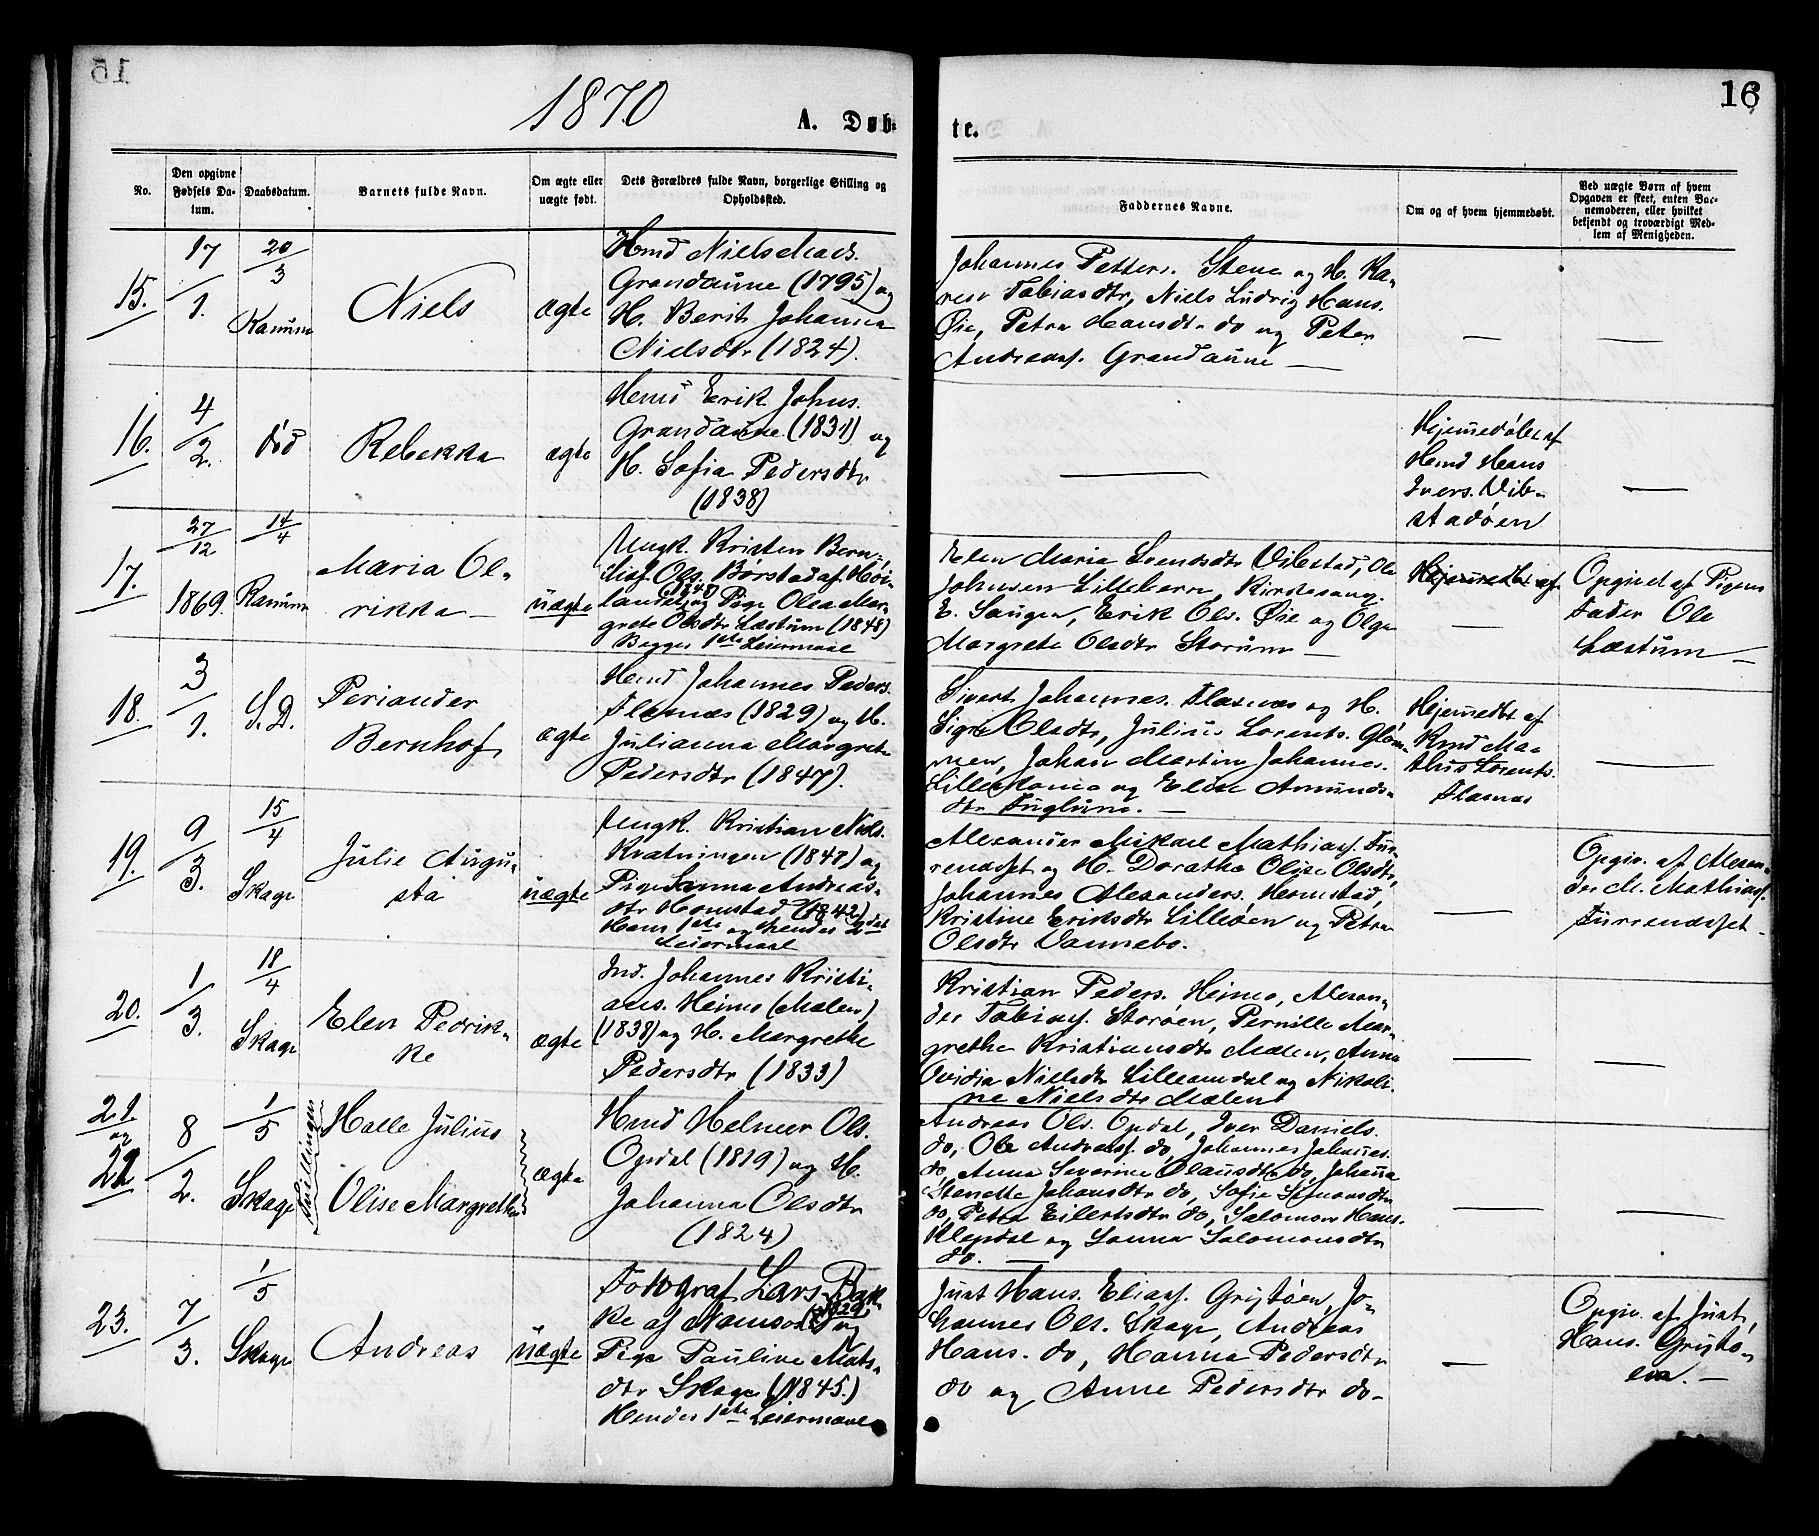 15
1870
A. Døb-
te.
16
No.
Den opgivne
Fødsels Da-
tum.
Daabsdatum.
Barnets fulde Navn.
Om ægte eller
uægte født.
Dets Forældres fulde Navn, borgerlige Stilling og
Opholdssted.
Faddernes Navne.
Om og af hvem hjemmedøbt.
Ved uægte Børn af hvem
Opgaven er skeet, enten Bar-
nemoderen, eller hvilket
bekjendt og troværdigt Med-
lem af Menigheden.
15.
17
1.
20
3
Ranum
Niels
ægte
Hmd Niels Mads.
Grandaune (1795) og
H. Berit Johanna
Nielsdtr (1824).
Johannes Petters. Stene og H. Ka-
ren Tobiasdtr, Niels Ludvig Hans.
Øie, Petra Hansdtr do og Peter
Andreass. Grandaune —
—
—
16.
4
2.
død
Rebekka
ægte
Hmd Erik Johns.
Grandaune (1831) og
H. Sofia Pedersdtr
(1838)
—
Hjemmedøbt af
Hmd Hans
Ivers. Vib-
stadøen
—
17.
27
12
1869.
14
4
Ranum
Maria Ol-
rikka —
uægte
Ungk. Kristen Bern-
Ols. Børstad af Høi-
landet (1847) og Pige Olea Mar-
grete Olsdtr Læstum (1848)
Begges 1ste Leiermaal
Elen Maria Svendsdtr Vibstad, Ole
Johnsen Lilleberre, Kirkesang.
E. Saugen, Erik Ols. Øie og Olga
Margrete Olsdtr Storum —
Hjemmedbt af
—
Opgivet af Pigens
Fader Ole
Læstum —
18.
3
1.
S.D.
Periander
Bernhof
ægte
Hmd Johannes Peders.
Flasnæs (1829) og H.
Julianna Margrete
Pedersdtr (1847).
Sivert Johannes. Flasnæs og H.
Signe Olsdtr, Julius Lorents. Gløm-
men, Johan Martin Johannes.
Lille og Elise Amunds-
dtr Fuglum. —
Hjemmedbt af
Hmd Ma-
thus Lorents.
Flasnæs
—
19.
9
3.
15
4
Skage
Julie Augu-
sta
uægte
Ungk. Kristian Niels.
Kvatningen (1847) og
Pige Sanna Andreas-
dtr Homstad (1842)
Hans 1ste og hendes 2det
Leiermaal
Alexander Mikael Mathiass. Fur-
rendset og H. Doratha Olise Olsdtr,
Johannes Alexanders. Homstad,
Kristine Eriksdtr Lilleøen og Petra
Olsdtr Vannebo.
—
Opgiv. af Alexan-
der M. Mathiass.
Furrendset —
20.
1
3.
18
4
Skage
Elen Pedrik-
ke
ægte
Ind. Johannes Kristi-
ans. Heimo (Mælen)
(1838) og H. Margrethe
Pedersdtr (1833)
Kristian Peders. Heimo, Alexan-
der Tobiass. Storøen, Pernille Mar-
grethe Kristiansdtr Mælen, Anna
Ovidia Nielsdtr Lilleamdal og Nikoli-
ne Nielsdtr Mælen
—
—
21.
og
22
8
2.
1
5
Skage
Tvillinger
Halle Julius
Olise Margrethe
ægte
Hmd Helmer Ols.
Opdal (1819) og H.
Johanna Olsdtr
(1824)
Andreas Ols. Opdal, Iver Daniels.
do, Ole Andreass. do, Johannes Johannes.
do, Anna Severine Olausdtr do, Johanna
Stenette Johansdtr do, Sofie Simonsdtr
do, Petra Eilertsdtr do, Salomon Hans.
Klepdal og Sanna Salomonsdtr
do. —
—
—
23.
7
3.
1
5
Skage
Andreas
uægte
Fotograf Lars Bak-
ke af Namsos (1829) og
Pige Pauline Mats-
dtr Skage (1845.)
Hendes 1ste Leiermaal
Just Hans. Eliass. Grystøen, Jo-
hannes Ols. Skage, Andreas
Hans. do, Hanna Pedersdtr
do og Anne Pedersdtr do —
—
Opgiv. af Just
Hans. Grystø-
en. —